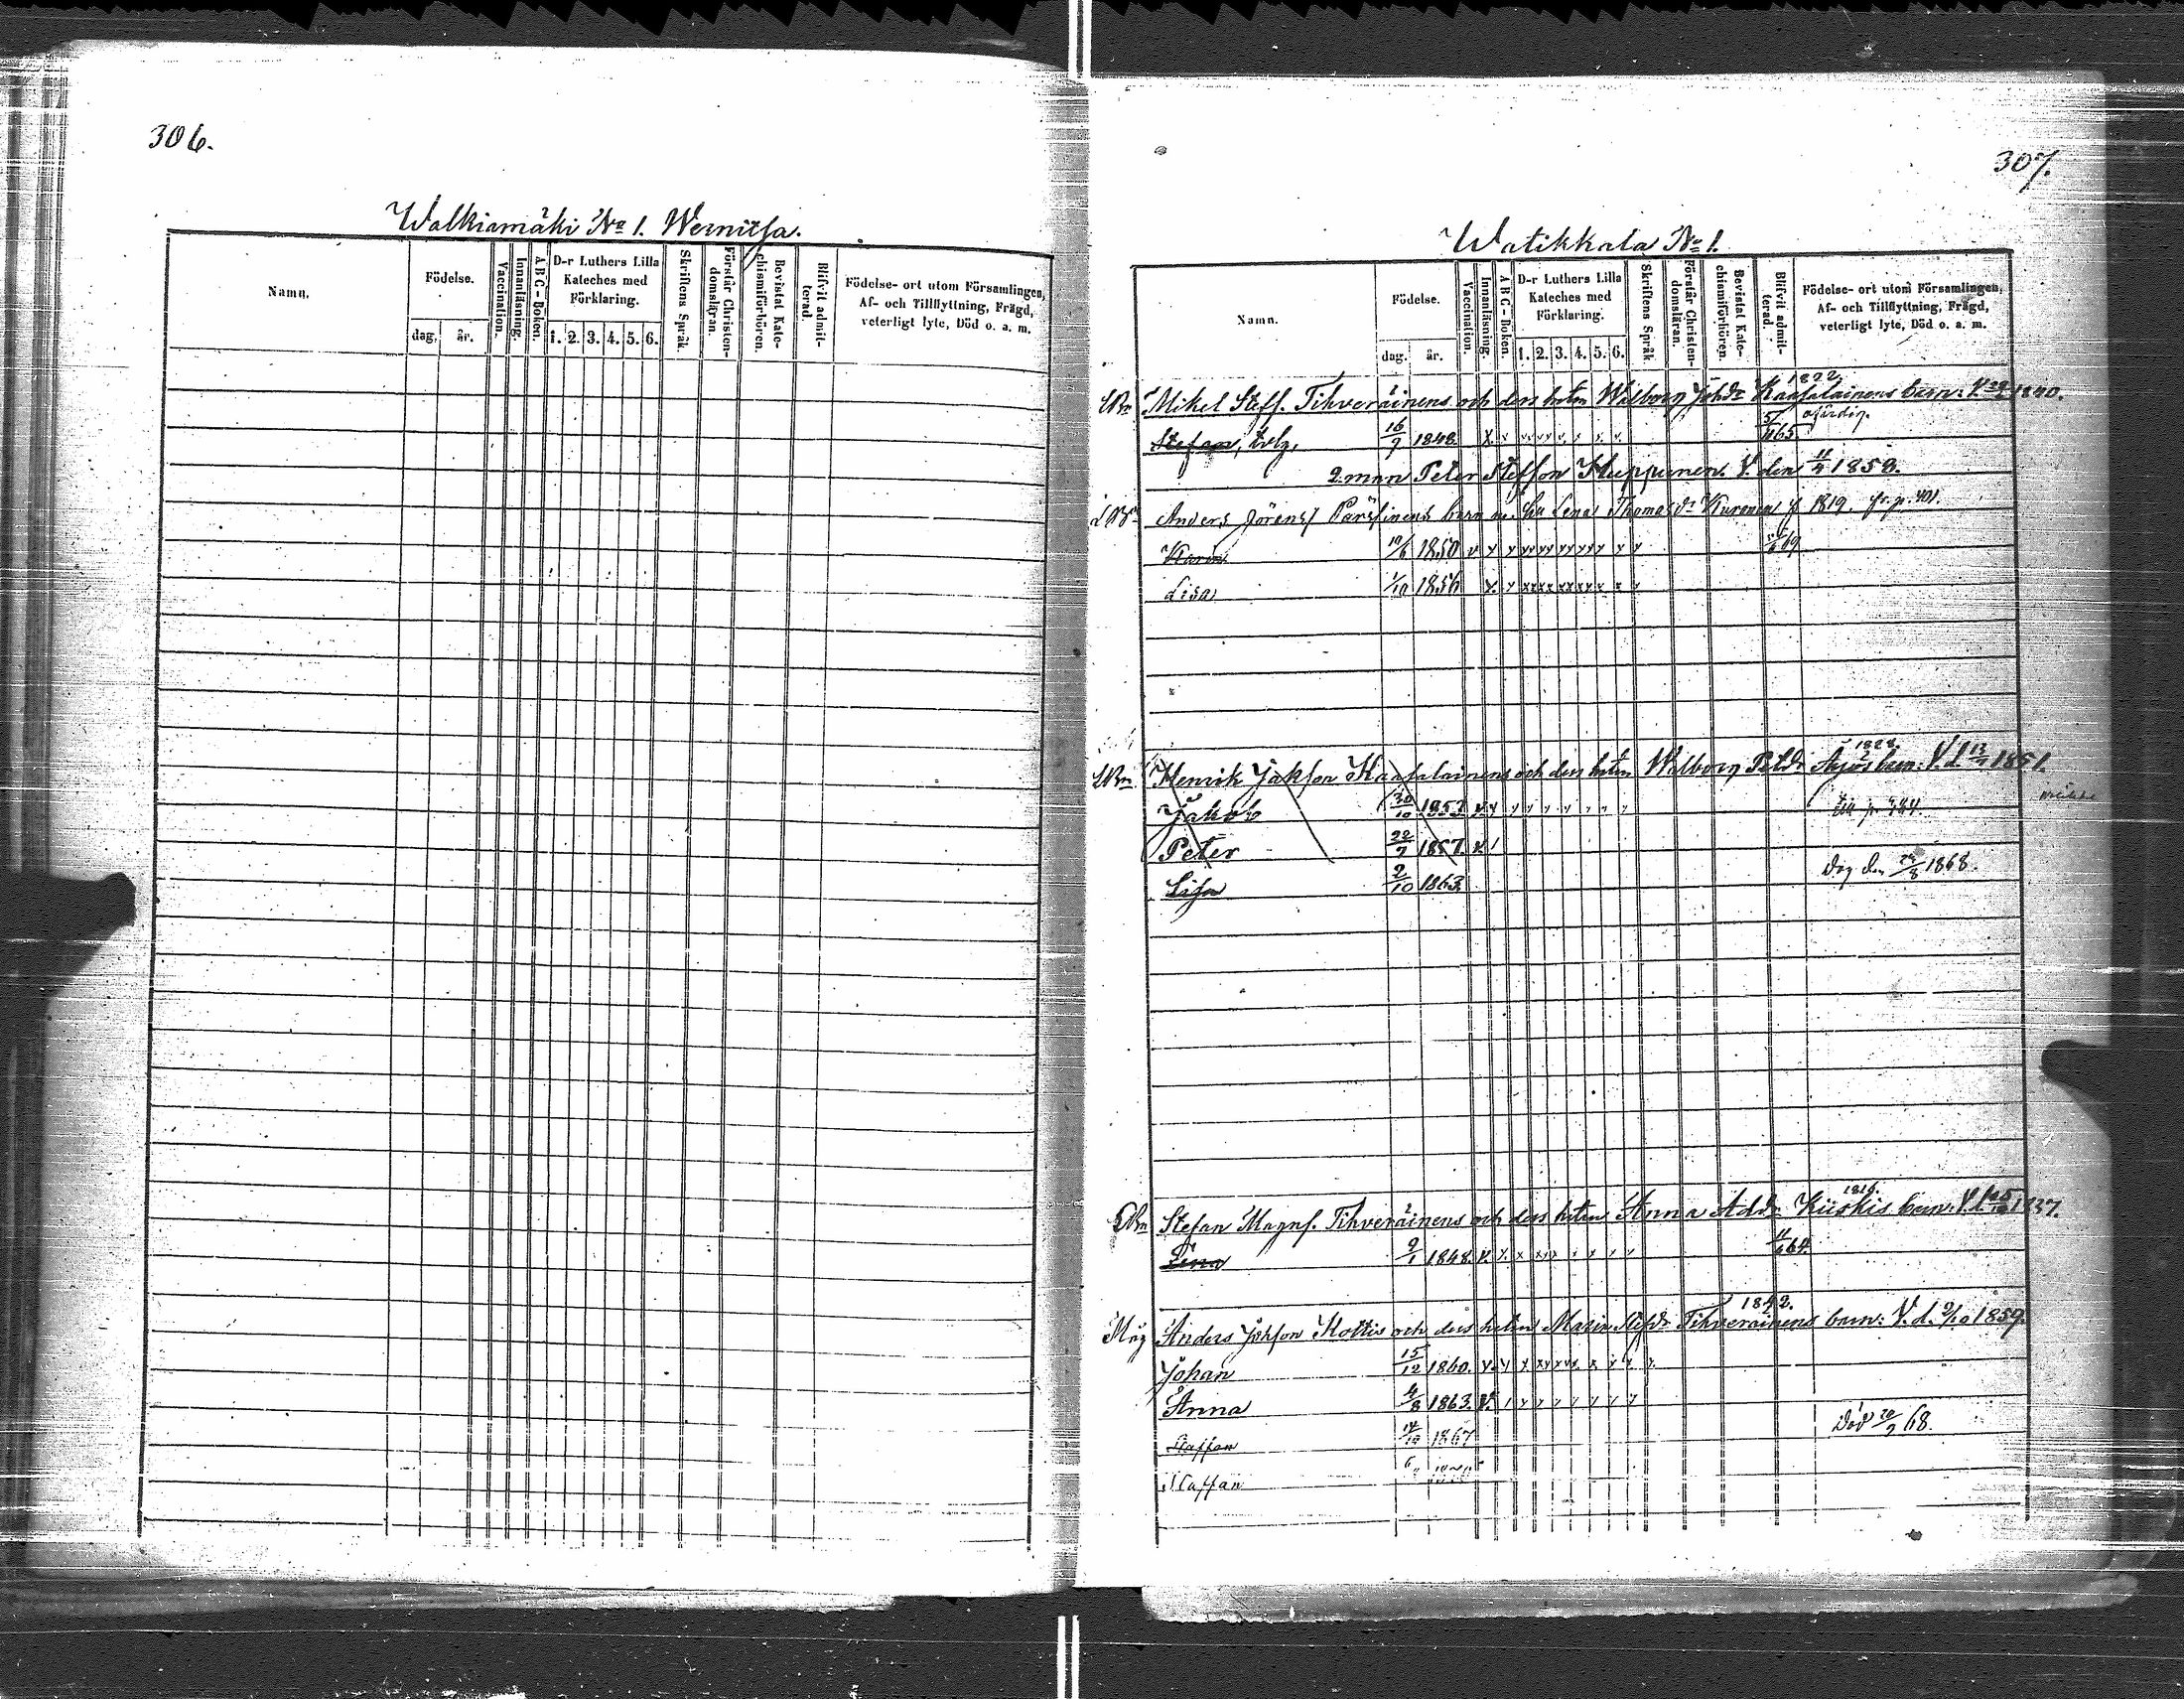 306.
Walkiamäki No 1. Wernitsa.
Namn.
Födelse.
dag. år.
Vaccination.
Innanläsning.
A B C - Boken.
D-r Luthers Lilla
Kateches med
Förklaring.
1. 2. 3. 4. 5. 6.
Skriftens Språk.
Förstår Christen-
domsläran.
Bevistat Kate-
chismiförhören.
Blifvit admit-
terad.
Födelse- ort utom Församlingen,
Af- och Tillflyttning, Frägd,
veterligt lyte, Död o. a. m.
307.
Watikkala No 1.
Namn.
Födelse.
dag. år.
Vaccination.
Innanläsning.
A B C - Boken.
D-r Luthers Lilla
Kateches med
Förklaring.
1. 2. 3. 4. 5. 6.
Skriftens Språk.
Förstår Christen-
domsläran.
Bevistat Kate-
chismiförhören.
Blifvit admit-
terad.
Födelse- ort utom Församlingen,
Af- och Tillflyttning, Frägd,
veterligt lyte, Död o. a. m.
1822
Mikel Steff. Tihveräinens och dess hstru Walborg Johdr Kaasalainens barn: 1840.
Stefan, 16/9 1848 65
2. man Peter Steffson Huppunen. V. den 11/4 1858.
Anders Jöranss Pärssinens barn Lena Thomasdr Kuronen f 1819. fr. p. 401.
Karin 10/6 1850 69
Lisa 1/10 1856
1828.
Henrik Jakson Kaasalainens och dess hstru Walborg Petdr barn: V. d. 1851.
Jakob 30/10 1853
Peter 22/7 1857.
Lisa 2/10 1863 Dog den 24/8 1868.
1816.
Stefan Magns. Tihveräinens och dess hstru Anna Addr Kiiskis barn: V. d. 1837.
Lena 9/1 1848. 64.
1842.
Måg Anders Johson Kottis och dess hstru Maria Stefdr Tihveräinens barn: V. d. 2/10 1859.
Johan 15/12 1860.
Anna 4/8 1863.
Staffan 14/10 1867 Död 20/2 68.
Staffan